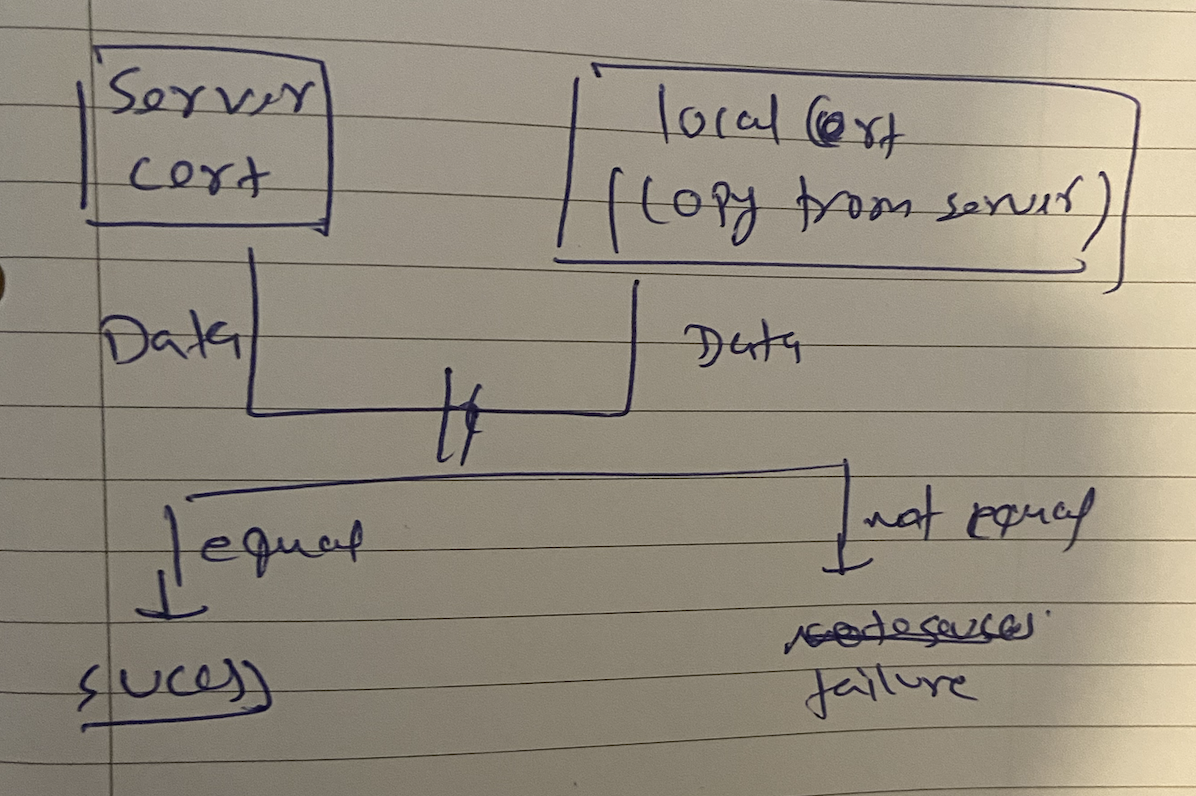 Server
cert
local Cert
(Copy from server)
Data
Data
equal
not equal
sucess
failure